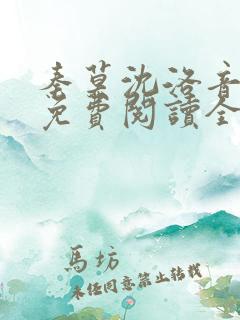 秦墓沈洛音
免費閱讀全
馬坊
未經同意禁止轉載